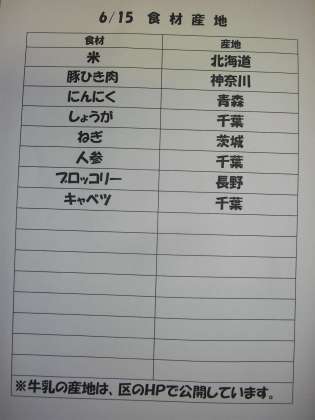 6/15 食材産地
食材 産地
米 北海道
豚ひき肉 神奈川
にんにく 青森
しょうが 千葉
ねぎ 茨城
人参 千葉
ブロッコリー 長野
キャベツ 千葉
※牛乳の産地は、区のHPで公開しています。